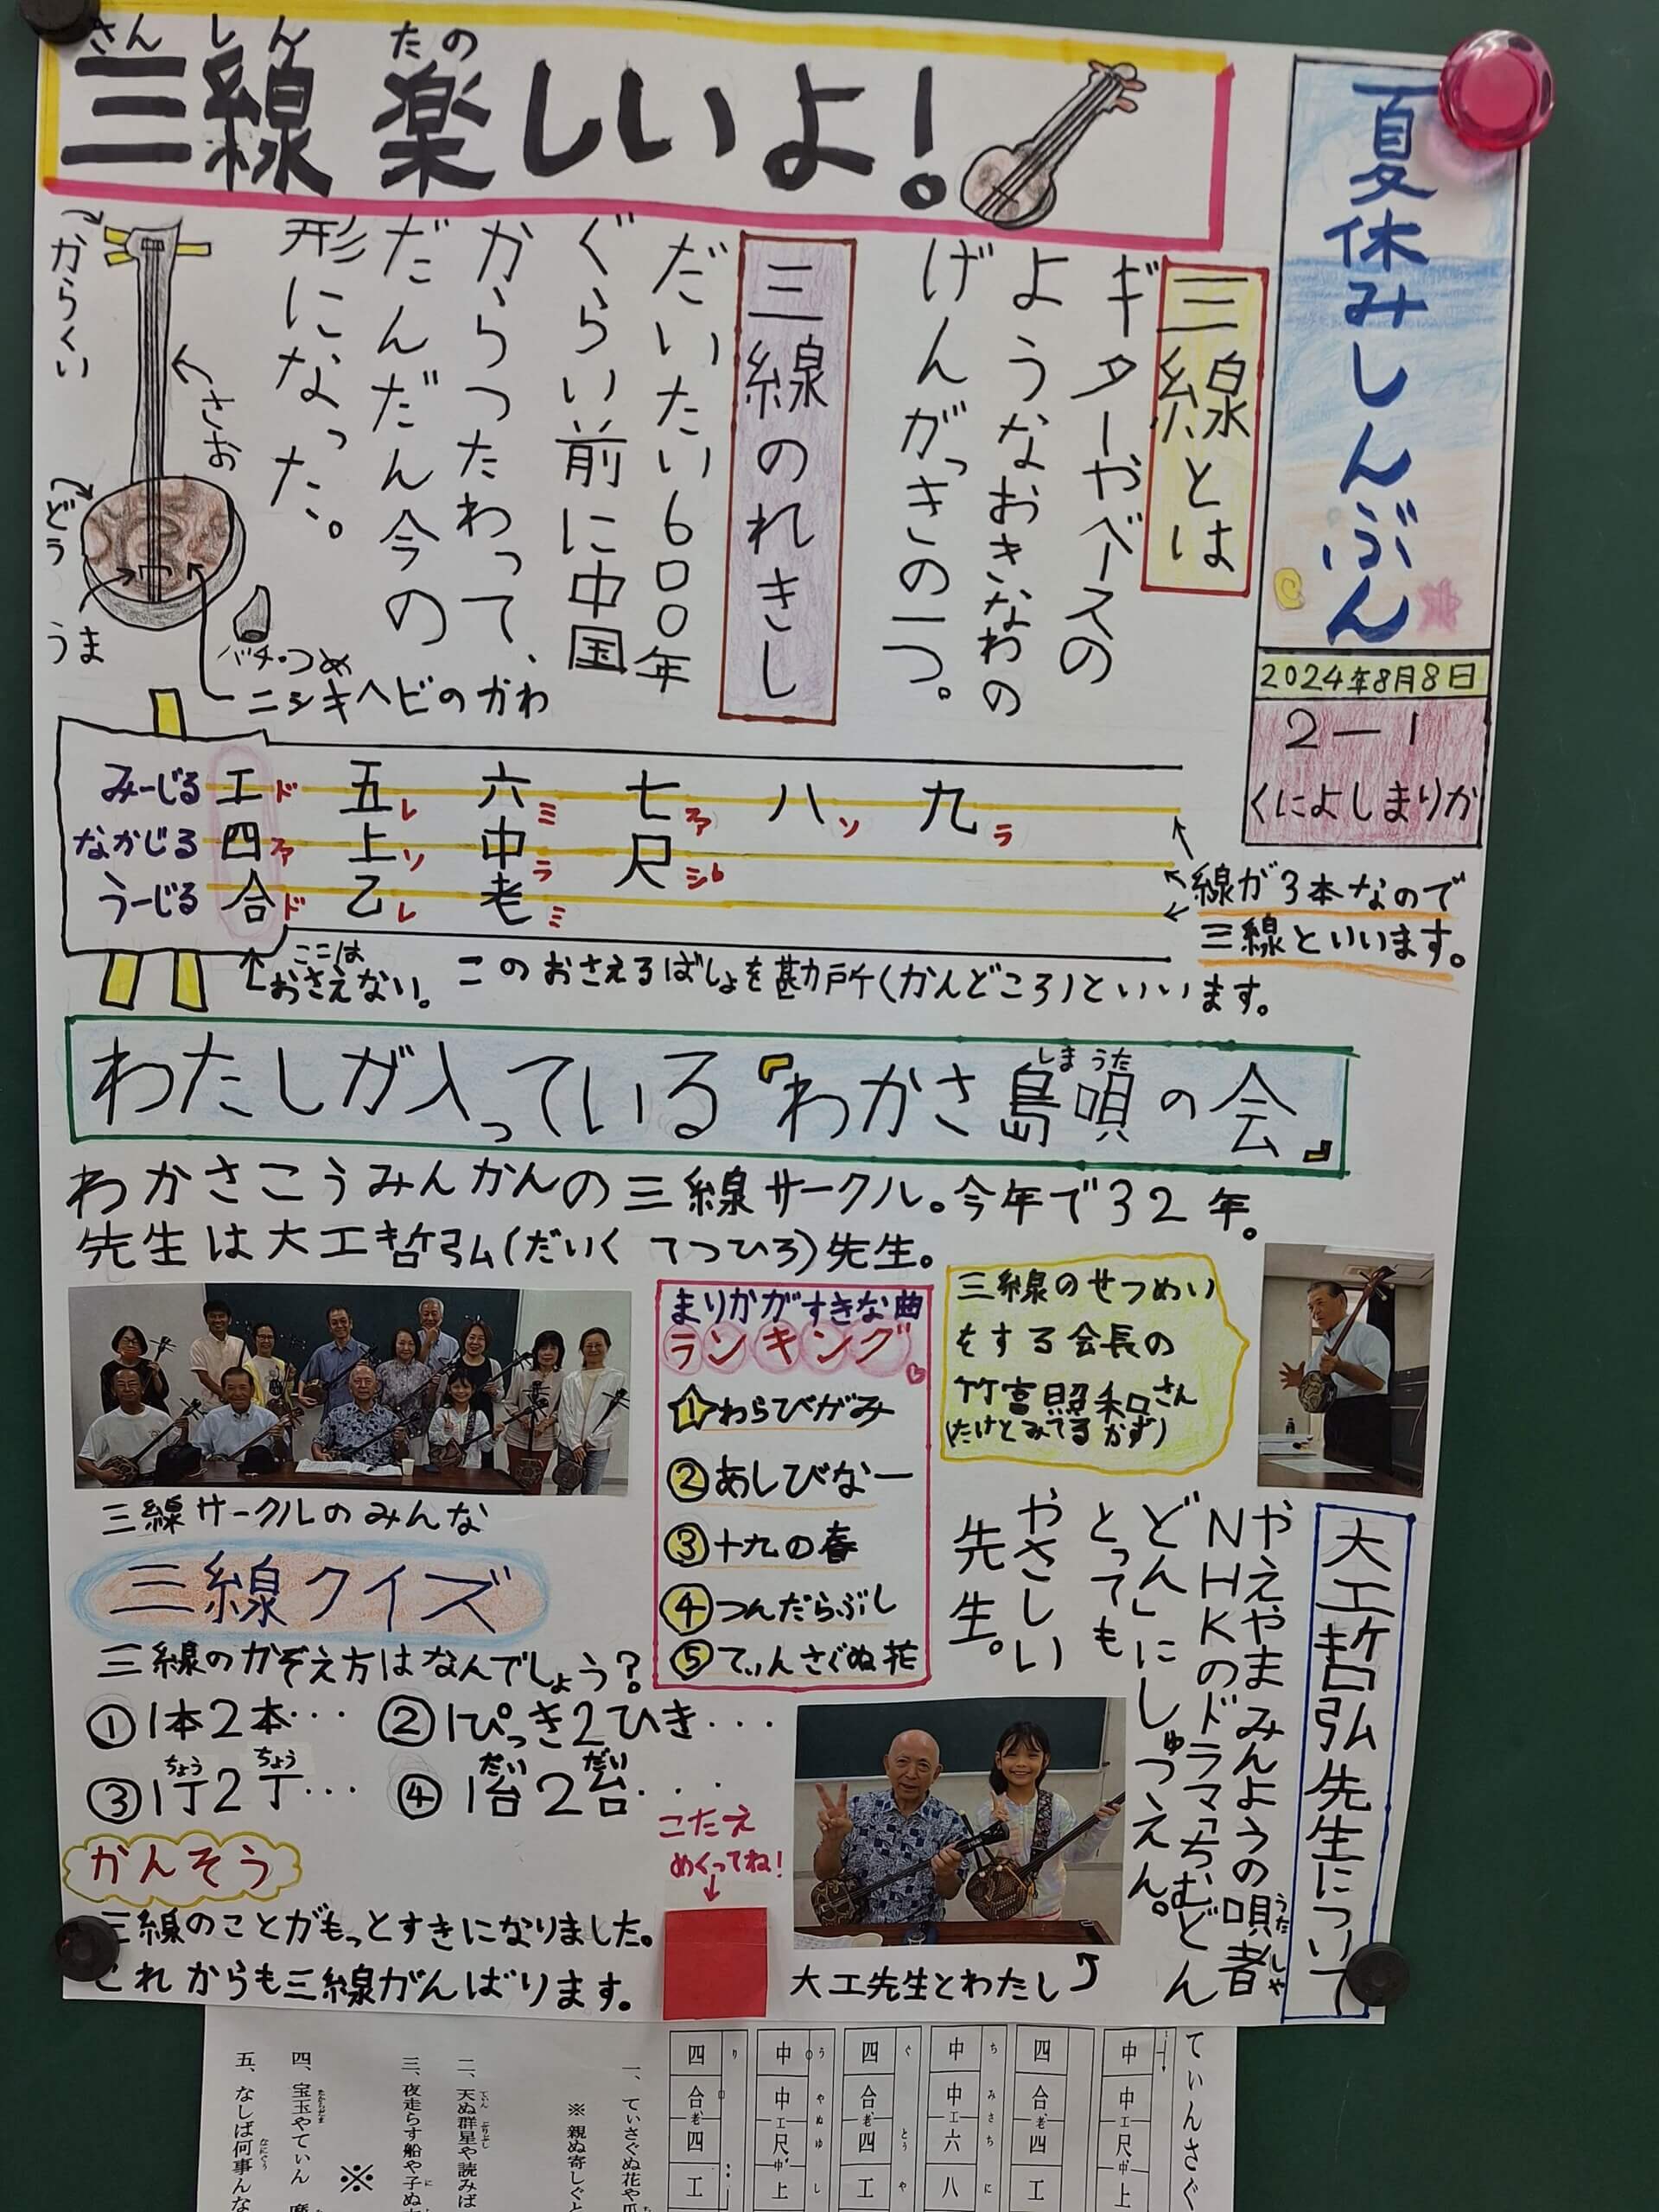 さんしん たの
三線 楽しいよ!
夏休みしんぶん
2024年8月8日
2―1
くによしまりか
三線とは
ギターやベースの
ようなおきなわの
げんがっきの一つ。
三線のれきし
だいたい600年
ぐらい前に中国
からつたわって、
だんだん今の
形になった。
からくい
さお
どう
うま
バチ・つめ
ニシキヘビのかわ
みーじる 工ド 五レ 六ミ 七ファ 八ソ 九ラ
なかじる 四ファ 上ソ 中ラ 尺シ♭
うーじる 合ド 乙レ 老ミ
線が3本なので
三線といいます。
ここは
おさえない。
このおさえるばしょを勘所(かんどころ)といいます。
しまうた
わたしが入っている『わかさ島唄の会』
わかさこうみんかんの三線サークル。今年で32年。
先生は大工哲弘(だいく てつひろ)先生。
三線サークルのみんな
まりかがすきな曲
ランキング
1わらびがみ
②あしびなー
③十九の春
④つんだらぶし
⑤てぃんさぐぬ花
三線のせつめい
をする会長の
竹富照和さん
(たけとみてるかず)
大工哲弘先生について
やえやまみんようの唄者
うたしゃ
NHKのドラマ「ちむどん
どん」にしゅつえん。
とっても
やさしい
先生。
三線クイズ
三線のかぞえ方はなんでしょう?
①1本2本… ②1ぴっき2ひき…
ちょう ちょう だい だい
③1丁2丁… ④1台2台…
こたえ
めくってね!
かんそう
三線のことがもっとすきになりました。
これからも三線がんばります。
大工先生とわたし
てぃんさぐ
中 中 工 尺 中 上
四 合 老 四 工
ちみさちに
中 中 工 六 八
四 合 老 四 工
うやぬゆし
中 中 工 尺 中 上
四 合 老 四 工
一、てぃさぐぬ花や爪
※ 親ぬ寄しぐと
二、天ぬ群星や読みば
てぃん ぶりぶし
三、夜走らす船や子ぬ
※
四、宝玉やてぃん
たからだま
五、なしば何事んな
なにぐとぅ